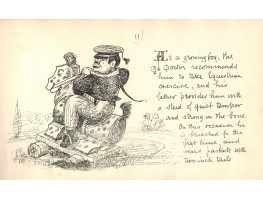 11
As a growing boy, the
Doctor recommends
him to take Equestrian
exercise, and his
father provides him with
a steed of quiet temper
and strong in the bone
On this occasion he
is breeched for the
first time, and
wears jackets with
two-inch tails